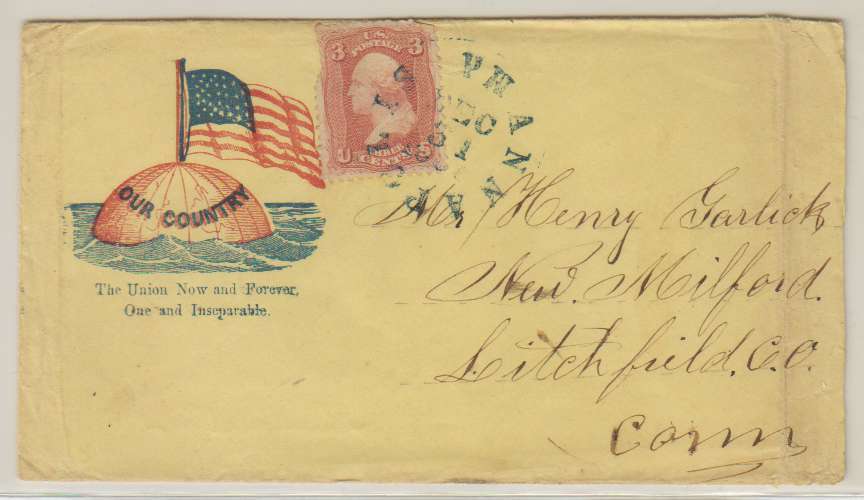 3 U.S. 3
POSTAGE
U THREE S
CENTS
ANNAPOLIS
DEC
OUR COUNTRY
The Union Now and Forever,
One and Inseparable.
Mr Henry Garlick
New. Milford.
Litchfield. C.O.
Conn